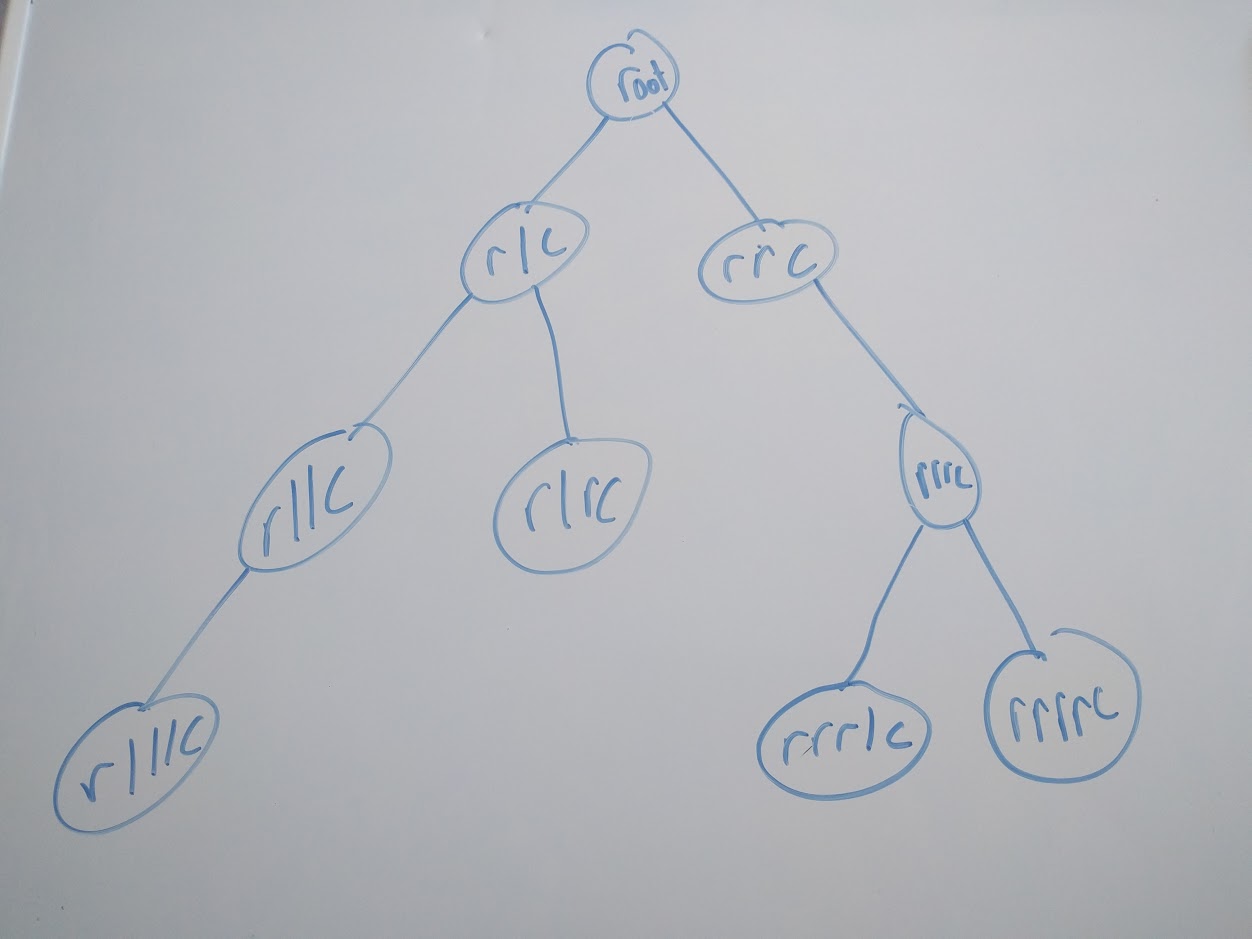 root
rlc
rrc
rllc
rlrc
rrrc
rlllc
rrrlc
rrrrc